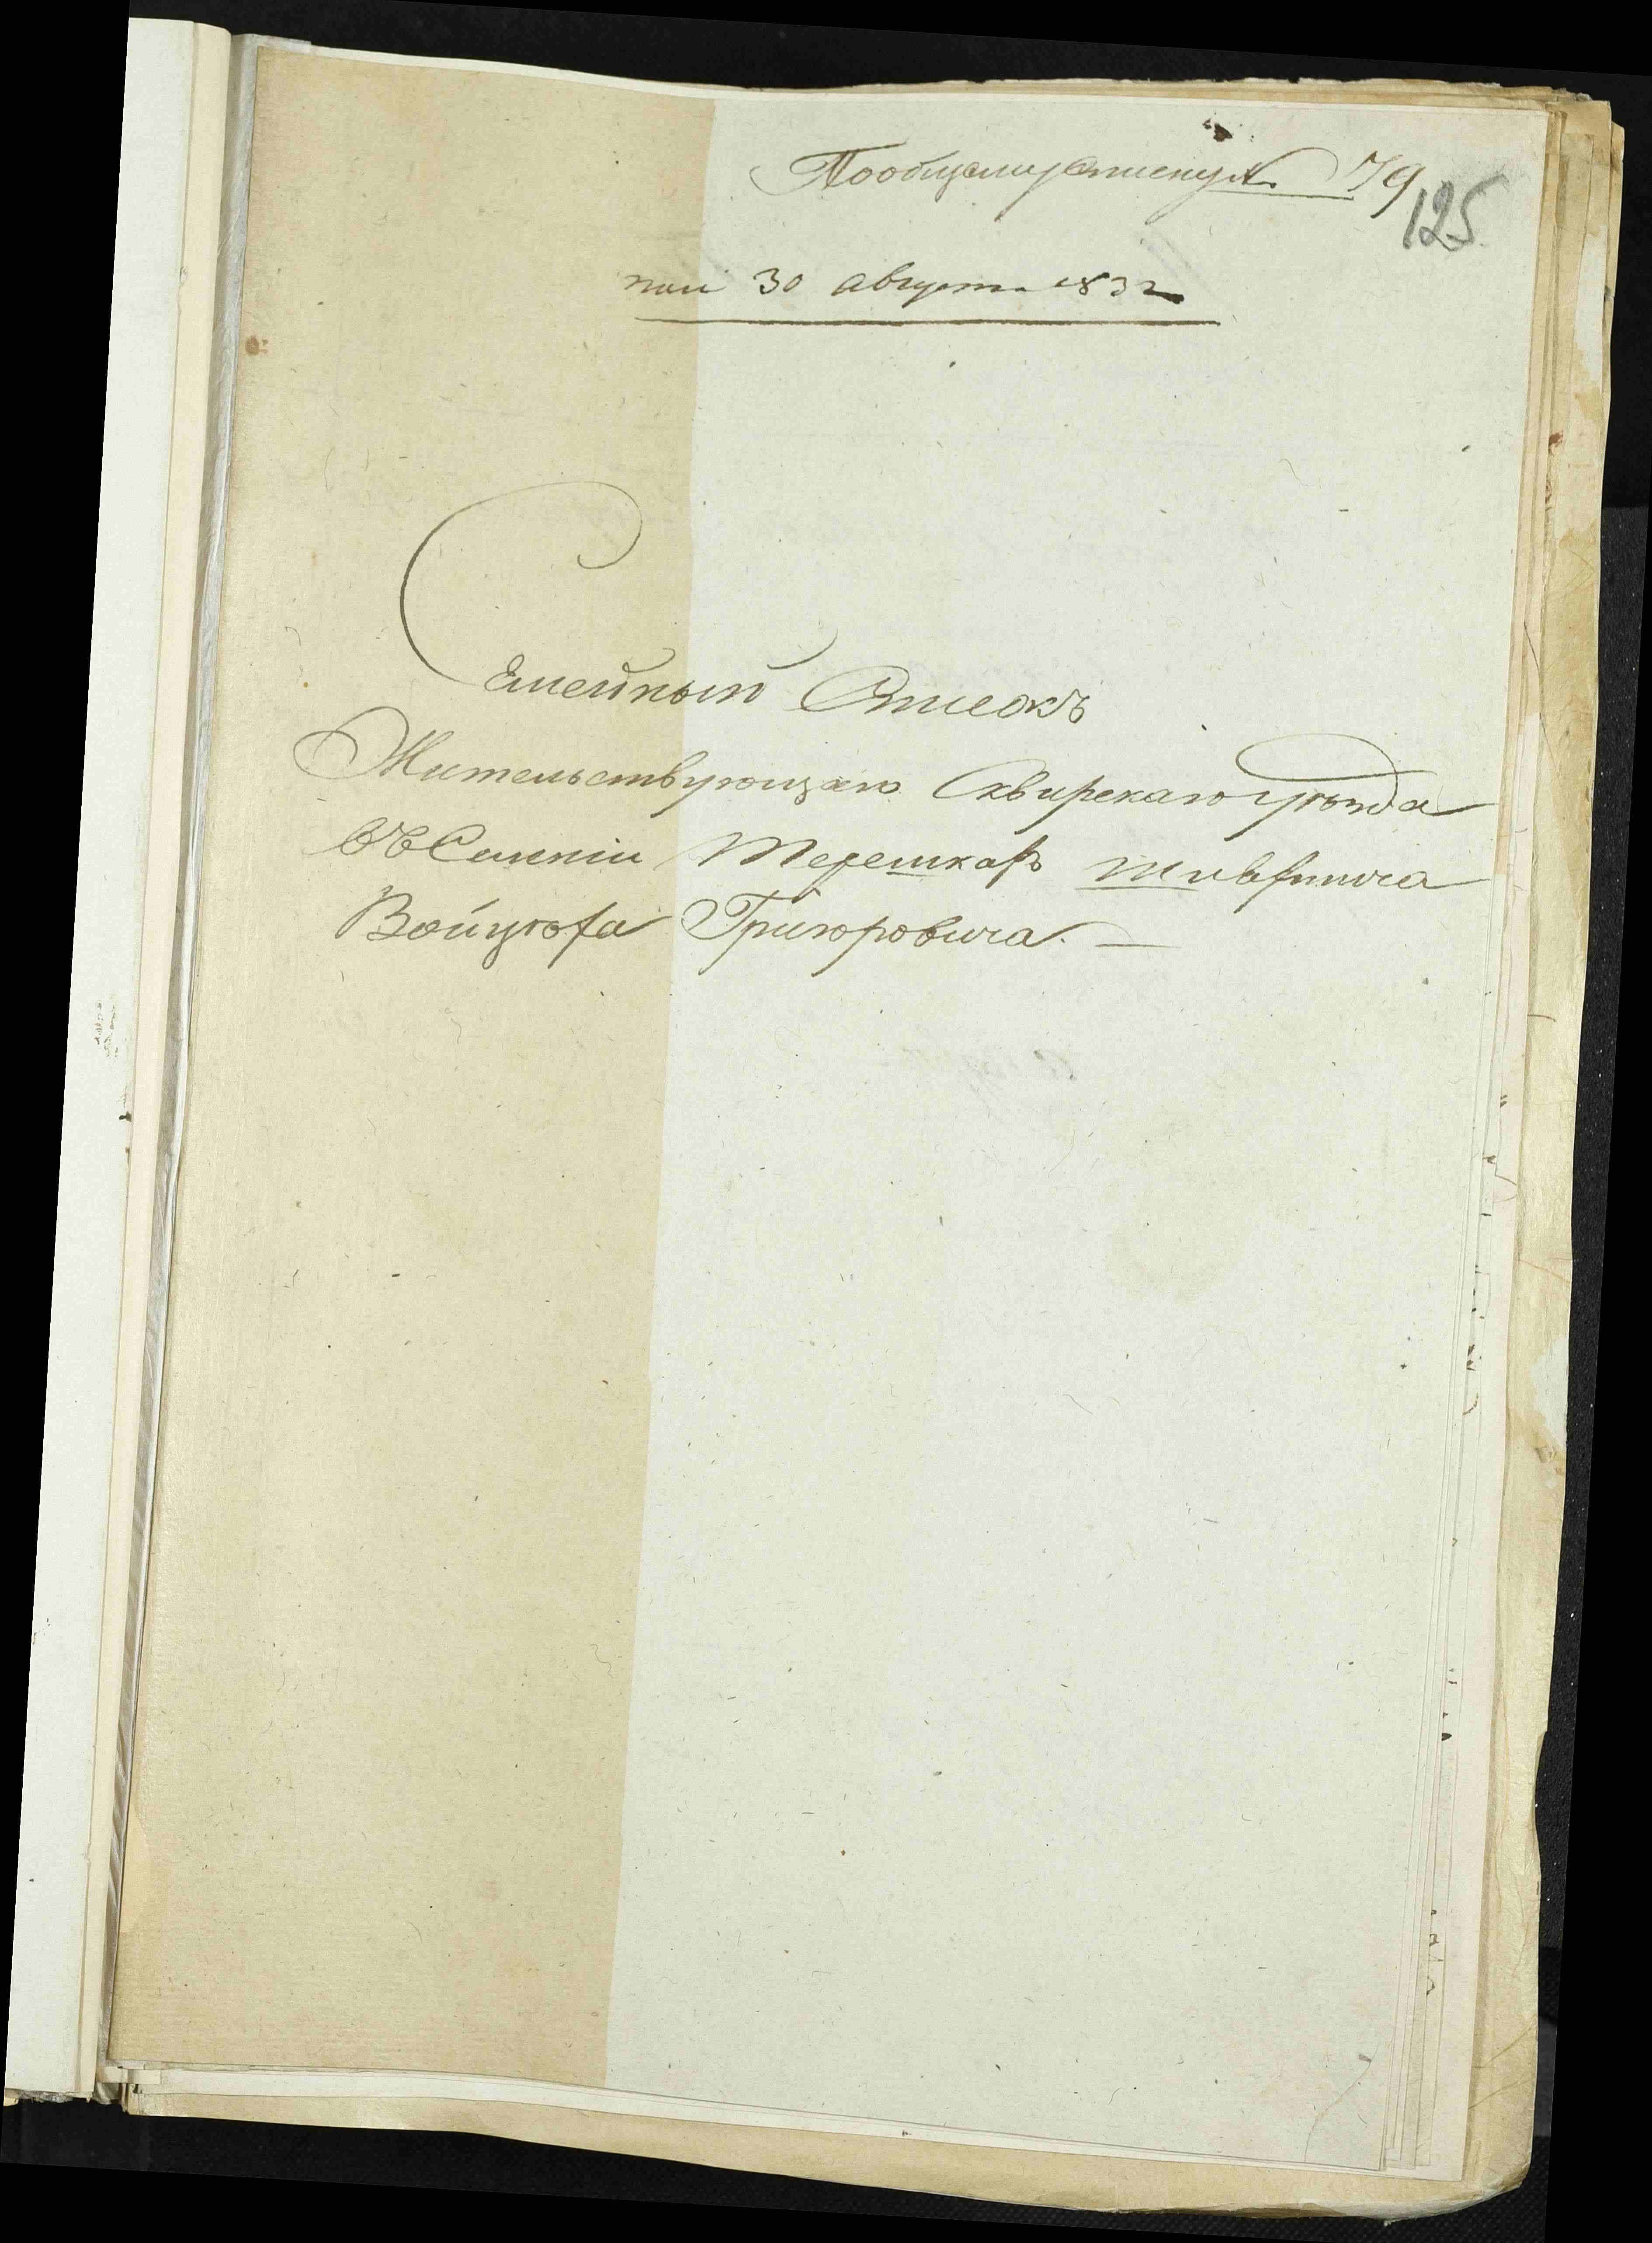 По общему списку № 79
125
пол. 30 августа 1832
Семейный Списокъ
Жительствующаго Сквирскаго уѣзда
въ Селеніи Терешкахъ шляхтича
Войцѣха Григоровича. —